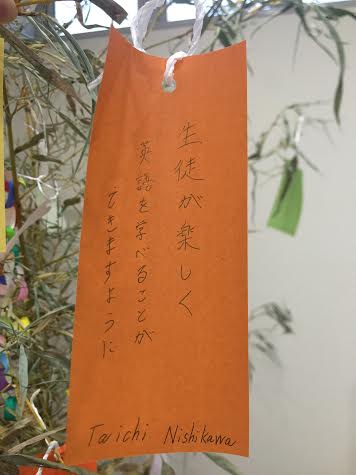 生徒が楽しく
英語を学べることが
できますように
Taichi Nishikawa